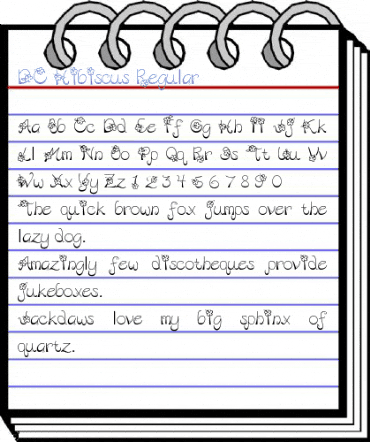 BO Hibiscus Regular
Aa Bb Cc Dd Ee Ff Gg Hh Ii Jj Kk
Ll Mm Nn Oo Pp Qq Rr Ss Tt Uu Vv
Ww Xx Yy Zz 1 2 3 4 5 6 7 8 9 0
The quick brown fox jumps over the
lazy dog.
Amazingly few discotheques provide
jukeboxes.
Jackdaws love my big sphinx of
quartz.